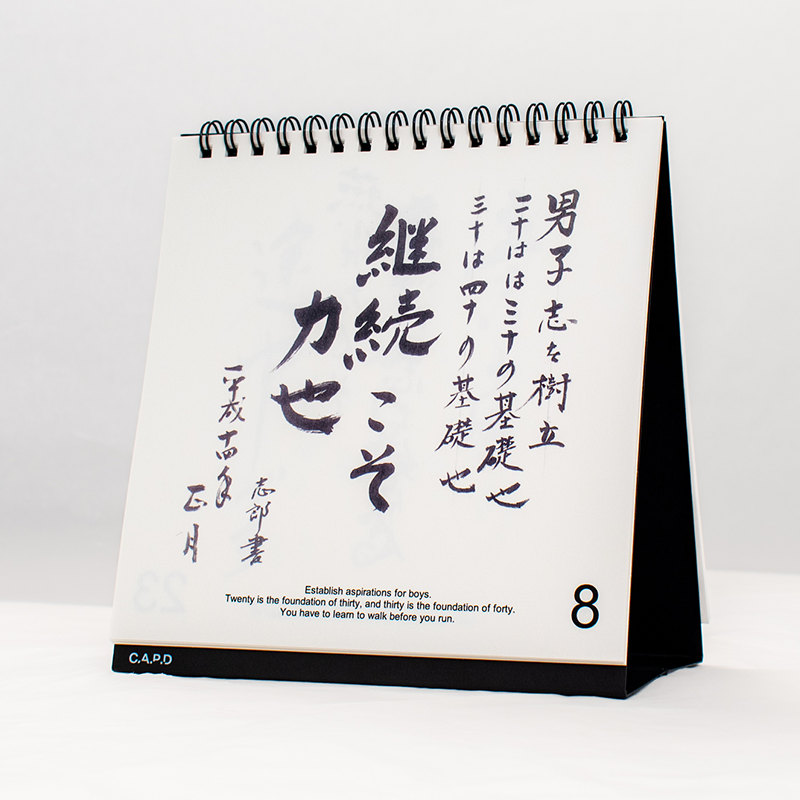 男子志を樹立
二十はは三十の基礎也
三十は四十の基礎也
継続こそ
力也
志郎書
平成十四年
正月
Establish aspirations for boys.
Twenty is the foundation of thirty, and thirty is the foundation of forty.
You have to learn to walk before you run.
8
C.A.P.D